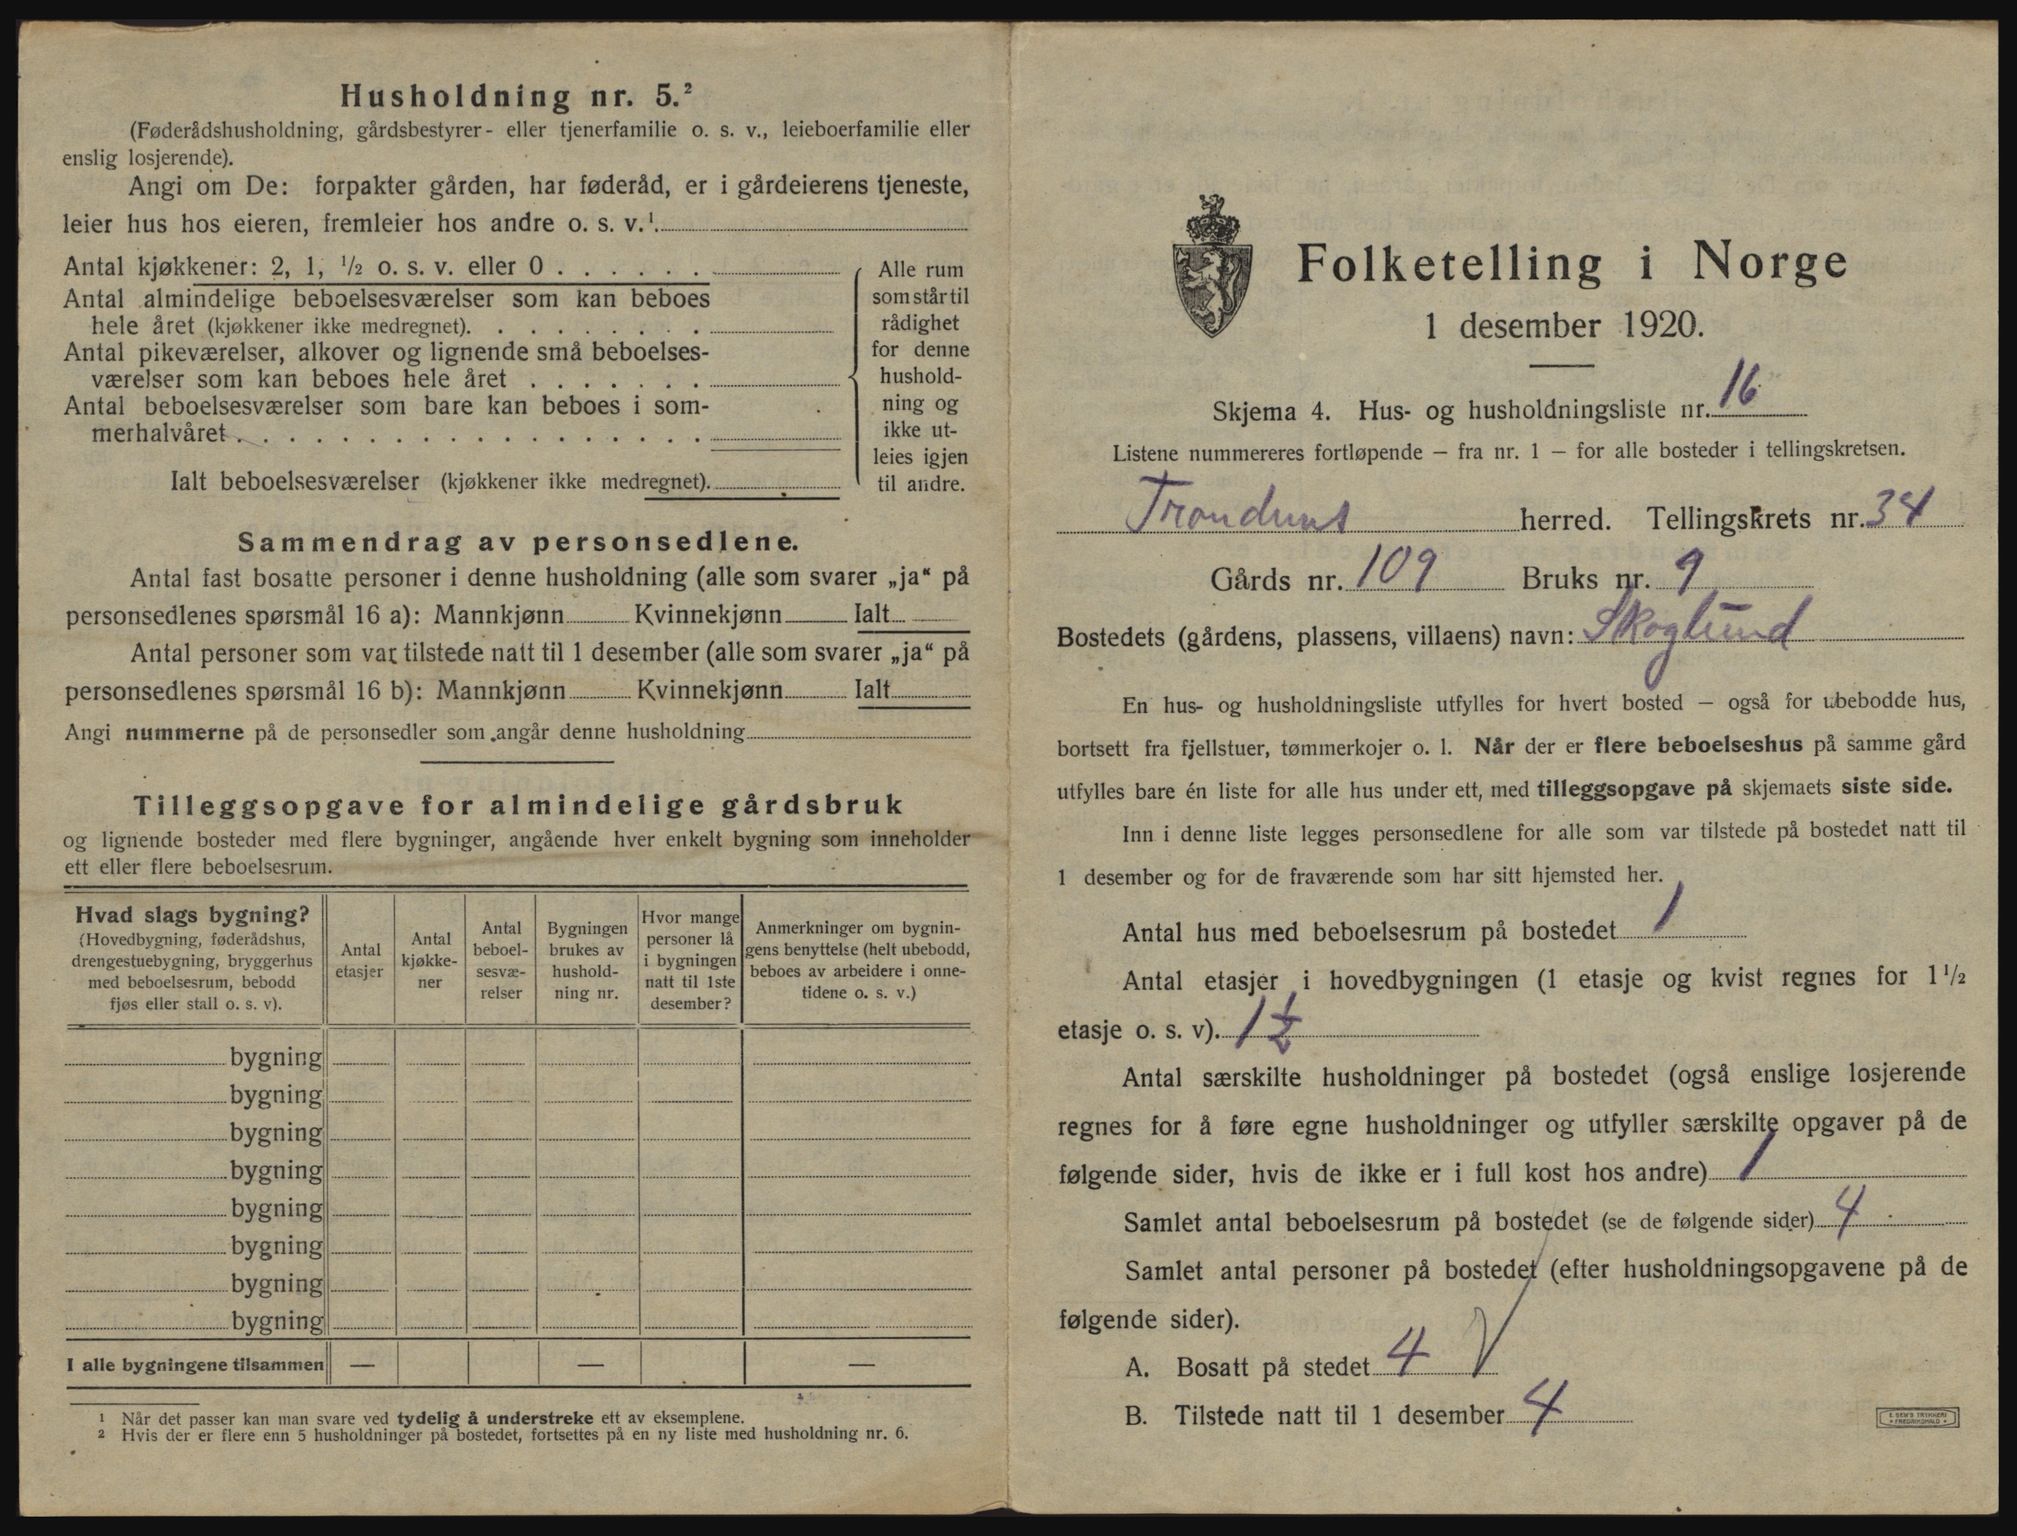 Husholdning nr. 5.²
(Føderådshusholdning, gårdsbestyrer- eller tjenerfamilie o. s. v., leieboerfamilie eller
enslig losjerende).
Angi om De: forpakter gården, har føderåd, er i gårdeierens tjeneste,
leier hus hos eieren, fremleier hos andre o. s. v.¹.
Antal kjøkkener: 2, 1, ½ o. s. v. eller 0 . . . . . .
Antal almindelige beboelsesværelser som kan beboes
hele året (kjøkkener ikke medregnet). . . . . . . . .
Antal pikeværelser, alkover og lignende små beboelses-
værelser som kan beboes hele året . . . . . . .
Antal beboelsesværelser som bare kan beboes i som-
merhalvåret . . . . . . . . . . . . . . . . . .
Ialt beboelsesværelser (kjøkkener ikke medregnet).
Alle rum
som står til
rådighet
for denne
hushold-
ning og
ikke ut-
leies igjen
til andre.
Sammendrag av personsedlene.
Antal fast bosatte personer i denne husholdning (alle som svarer „ja“ på
personsedlenes spørsmål 16 a): Mannkjønn Kvinnekjønn Ialt
Antal personer som var tilstede natt til 1 desember (alle som svarer „ja“ på
personsedlenes spørsmål 16 b): Mannkjønn Kvinnekjønn Ialt
Angi nummerne på de personsedler som angår denne husholdning
Tilleggsopgave for almindelige gårdsbruk
og lignende bosteder med flere bygninger, angående hver enkelt bygning som inneholder
ett eller flere beboelsesrum.
Hvad slags bygning?
(Hovedbygning, føderådshus,
drengestuebygning, bryggerhus
med beboelsesrum, bebodd
fjøs eller stall o. s. v).
Antal
etasjer
Antal
kjøkke-
ner
Antal
beboel-
sesvæ-
relser
Bygningen
brukes av
hushold-
ning nr.
Hvor mange
personer lå
i bygningen
natt til 1ste
desember?
Anmerkninger om bygnin-
gens benyttelse (helt ubebodd,
beboes av arbeidere i onne-
tidene o. s. v.)
bygning
bygning
bygning
bygning
bygning
bygning
bygning
bygning
I alle bygningene tilsammen — — —
¹ Når det passer kan man svare ved tydelig å understreke ett av eksemplene.
² Hvis der er flere enn 5 husholdninger på bostedet, fortsettes på en ny liste med husholdning nr. 6.
Folketelling i Norge
1 desember 1920.
Skjema 4. Hus- og husholdningsliste nr. 16
Listene nummereres fortløpende – fra nr. 1 – for alle bosteder i tellingskretsen.
Trondenes herred. Tellingskrets nr. 34
Gårds nr. 109 Bruks nr. 9
Bostedets (gårdens, plassens, villaens) navn: Skoglund
En hus- og husholdningsliste utfylles for hvert bosted – også for ubebodde hus,
bortsett fra fjellstuer, tømmerkojer o. l. Når der er flere beboelseshus på samme gård
utfylles bare én liste for alle hus under ett, med tilleggsopgave på skjemaets siste side.
Inn i denne liste legges personsedlene for alle som var tilstede på bostedet natt til
1 desember og for de fraværende som har sitt hjemsted her.
Antal hus med beboelsesrum på bostedet 1
Antal etasjer i hovedbygningen (1 etasje og kvist regnes for 1 ½
etasje o. s. v). 1 ½
Antal særskilte husholdninger på bostedet (også enslige losjerende
regnes for å føre egne husholdninger og utfyller særskilte opgaver på de
følgende sider, hvis de ikke er i full kost hos andre) 1
Samlet antal beboelsesrum på bostedet (se de følgende sider) 4
Samlet antal personer på bostedet (efter husholdningsopgavene på de
følgende sider).
A. Bosatt på stedet 4
B. Tilstede natt til 1 desember 4
E. SEM'S TRYKKERI
• FREDRIKSHALD •